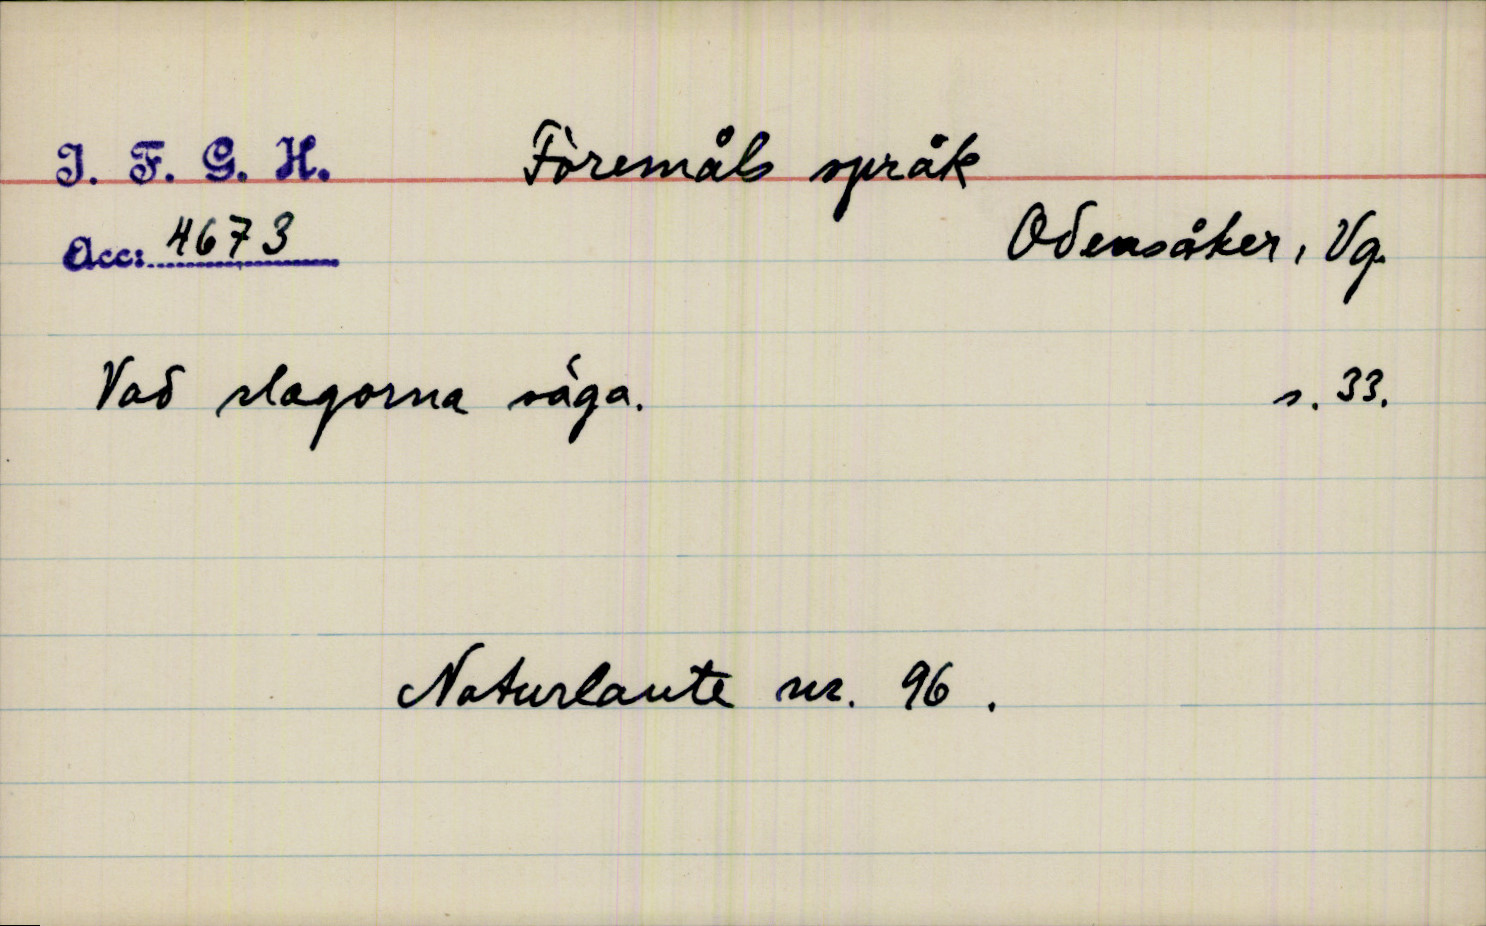 I. F. G. H.
Föremåls språk
Acc: 4673
Odensåker, Vg.
Vad slagorna säga.
s. 33.
Naturlaute nr. 96.